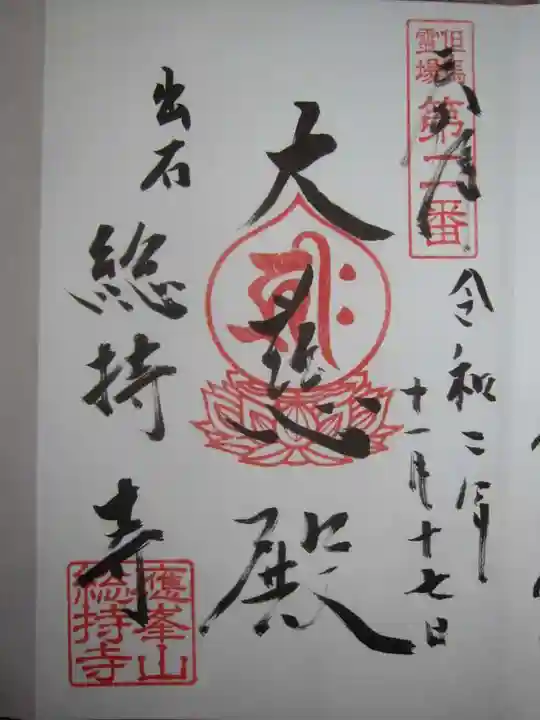 但馬
霊場
第二番
奉拝
令和二年
十一月十七日
大慈殿
出石
総持寺
應峯山
総持寺